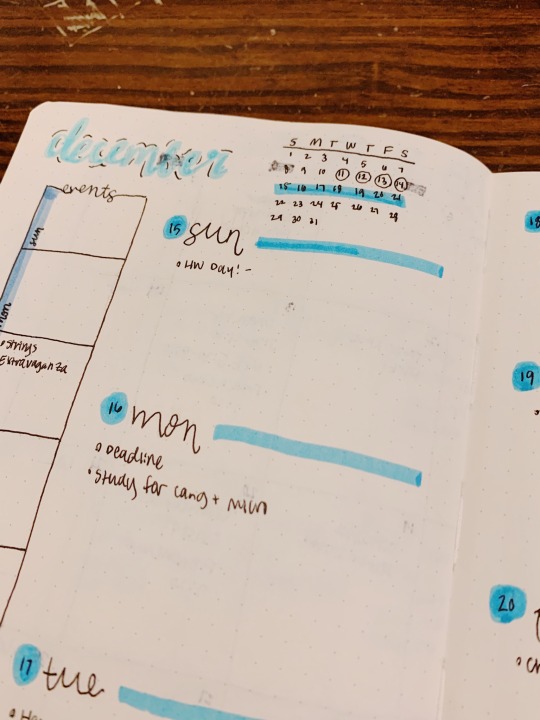 december
S M T W T F S
1 2 3 4 5 6 7
9 10 11 12 13 14
15 16 17 18 19 20 21
22 23 24 25 26 27 28
29 30 31
events
sun
mon
• Strings
Extravaganza
15 sun
• HW Day! -
16 mon
• Deadline
• Study for
17 tue
18
19
20